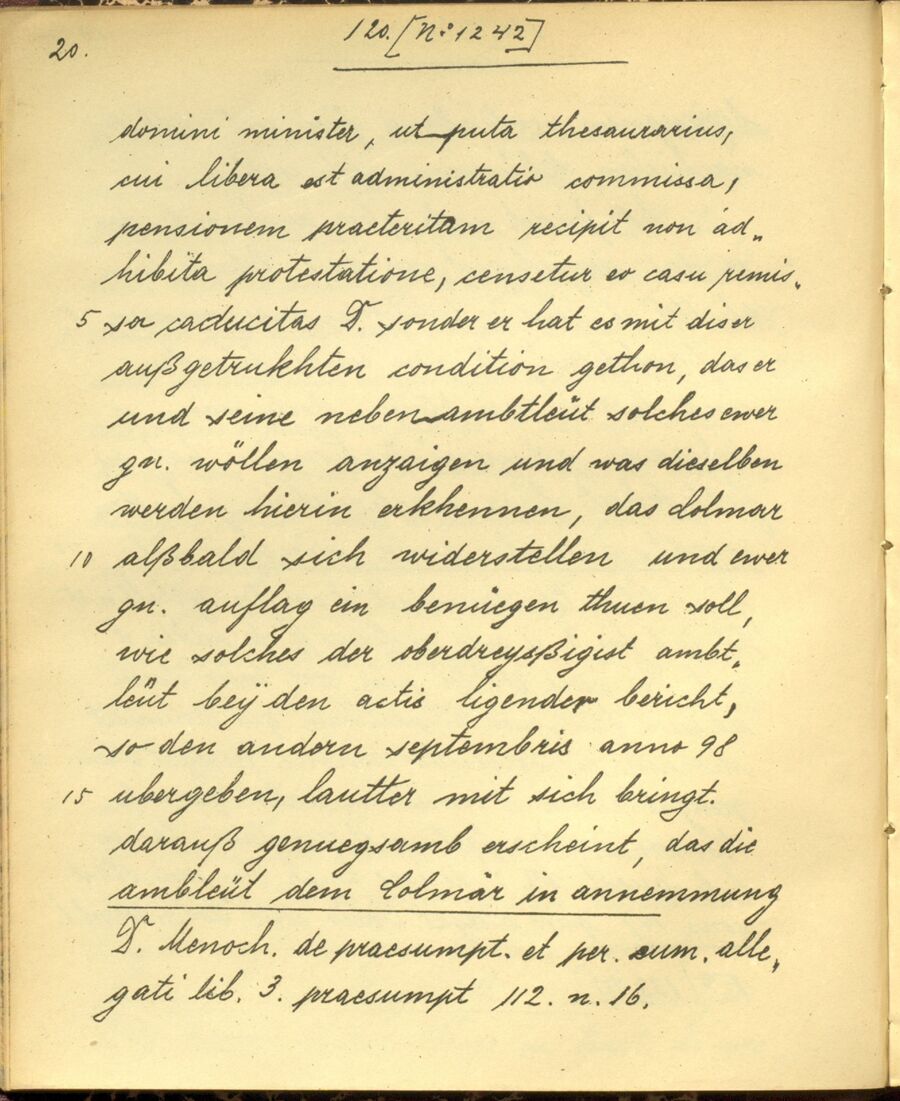 20.
120. [N: 1242]
domini minister, ut puta thesaurarius,
cui libera est administratio commissa,
pensionem praeteritam recipit non ad„
hibita protestatione, censetur eo casu remis„
5 sa caducitas D. sonder er hat es mit diser
außgetrukhten condition gethon, das er
und seine neben ambtleüt solches ewer
gn. wöllen anzaigen und was dieselben
werden hierin erkhennen, das Colmar
10 alßbald sich widerstellen und ewer
gn. auflag ein benüegen thuen soll,
wie solches der oberdreysßigist ambt„
leüt beÿ den actis ligender bericht,
so den andern septembris anno 98
15 ubergeben, lautter mit sich bringt.
darauß genuegsamb erscheint, das die
ambleüt dem Colmar in annemmung
D. Menoch. de praesumpt. et per. eum. alle„
gati lib. 3. praesumpt 112. n. 16.